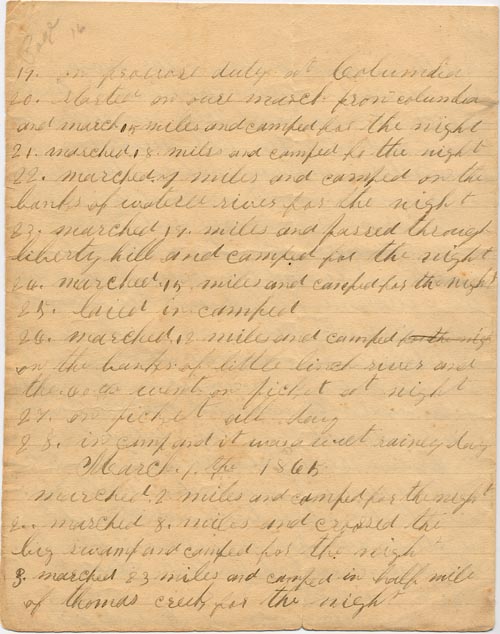 Page 16
19. on provost duty at Columbia
20. started on oure march from columbia
and march 15 miles and camped for the night
21. marched 18 miles and camped fo the night
22. marched 9 miles and camped on the
banks of wateree river for the night
23. marched 19 miles and passed through
liberty hill and camped for the night
24. marched 15 miles and camped for the night
25. laied in camped
26. marched 12 miles and camped for the nig
on the banks of little linch river and
the co went on picket at night
27. on picket all day
28. in camp and it was a wet rainey day
March, 1, 1865
marched 2 miles and camped for the night
2. marched 8 miles and crossed the
big swamp and camped for the night
3. marched 23 miles and camped in half mile
of thomas creek for the night